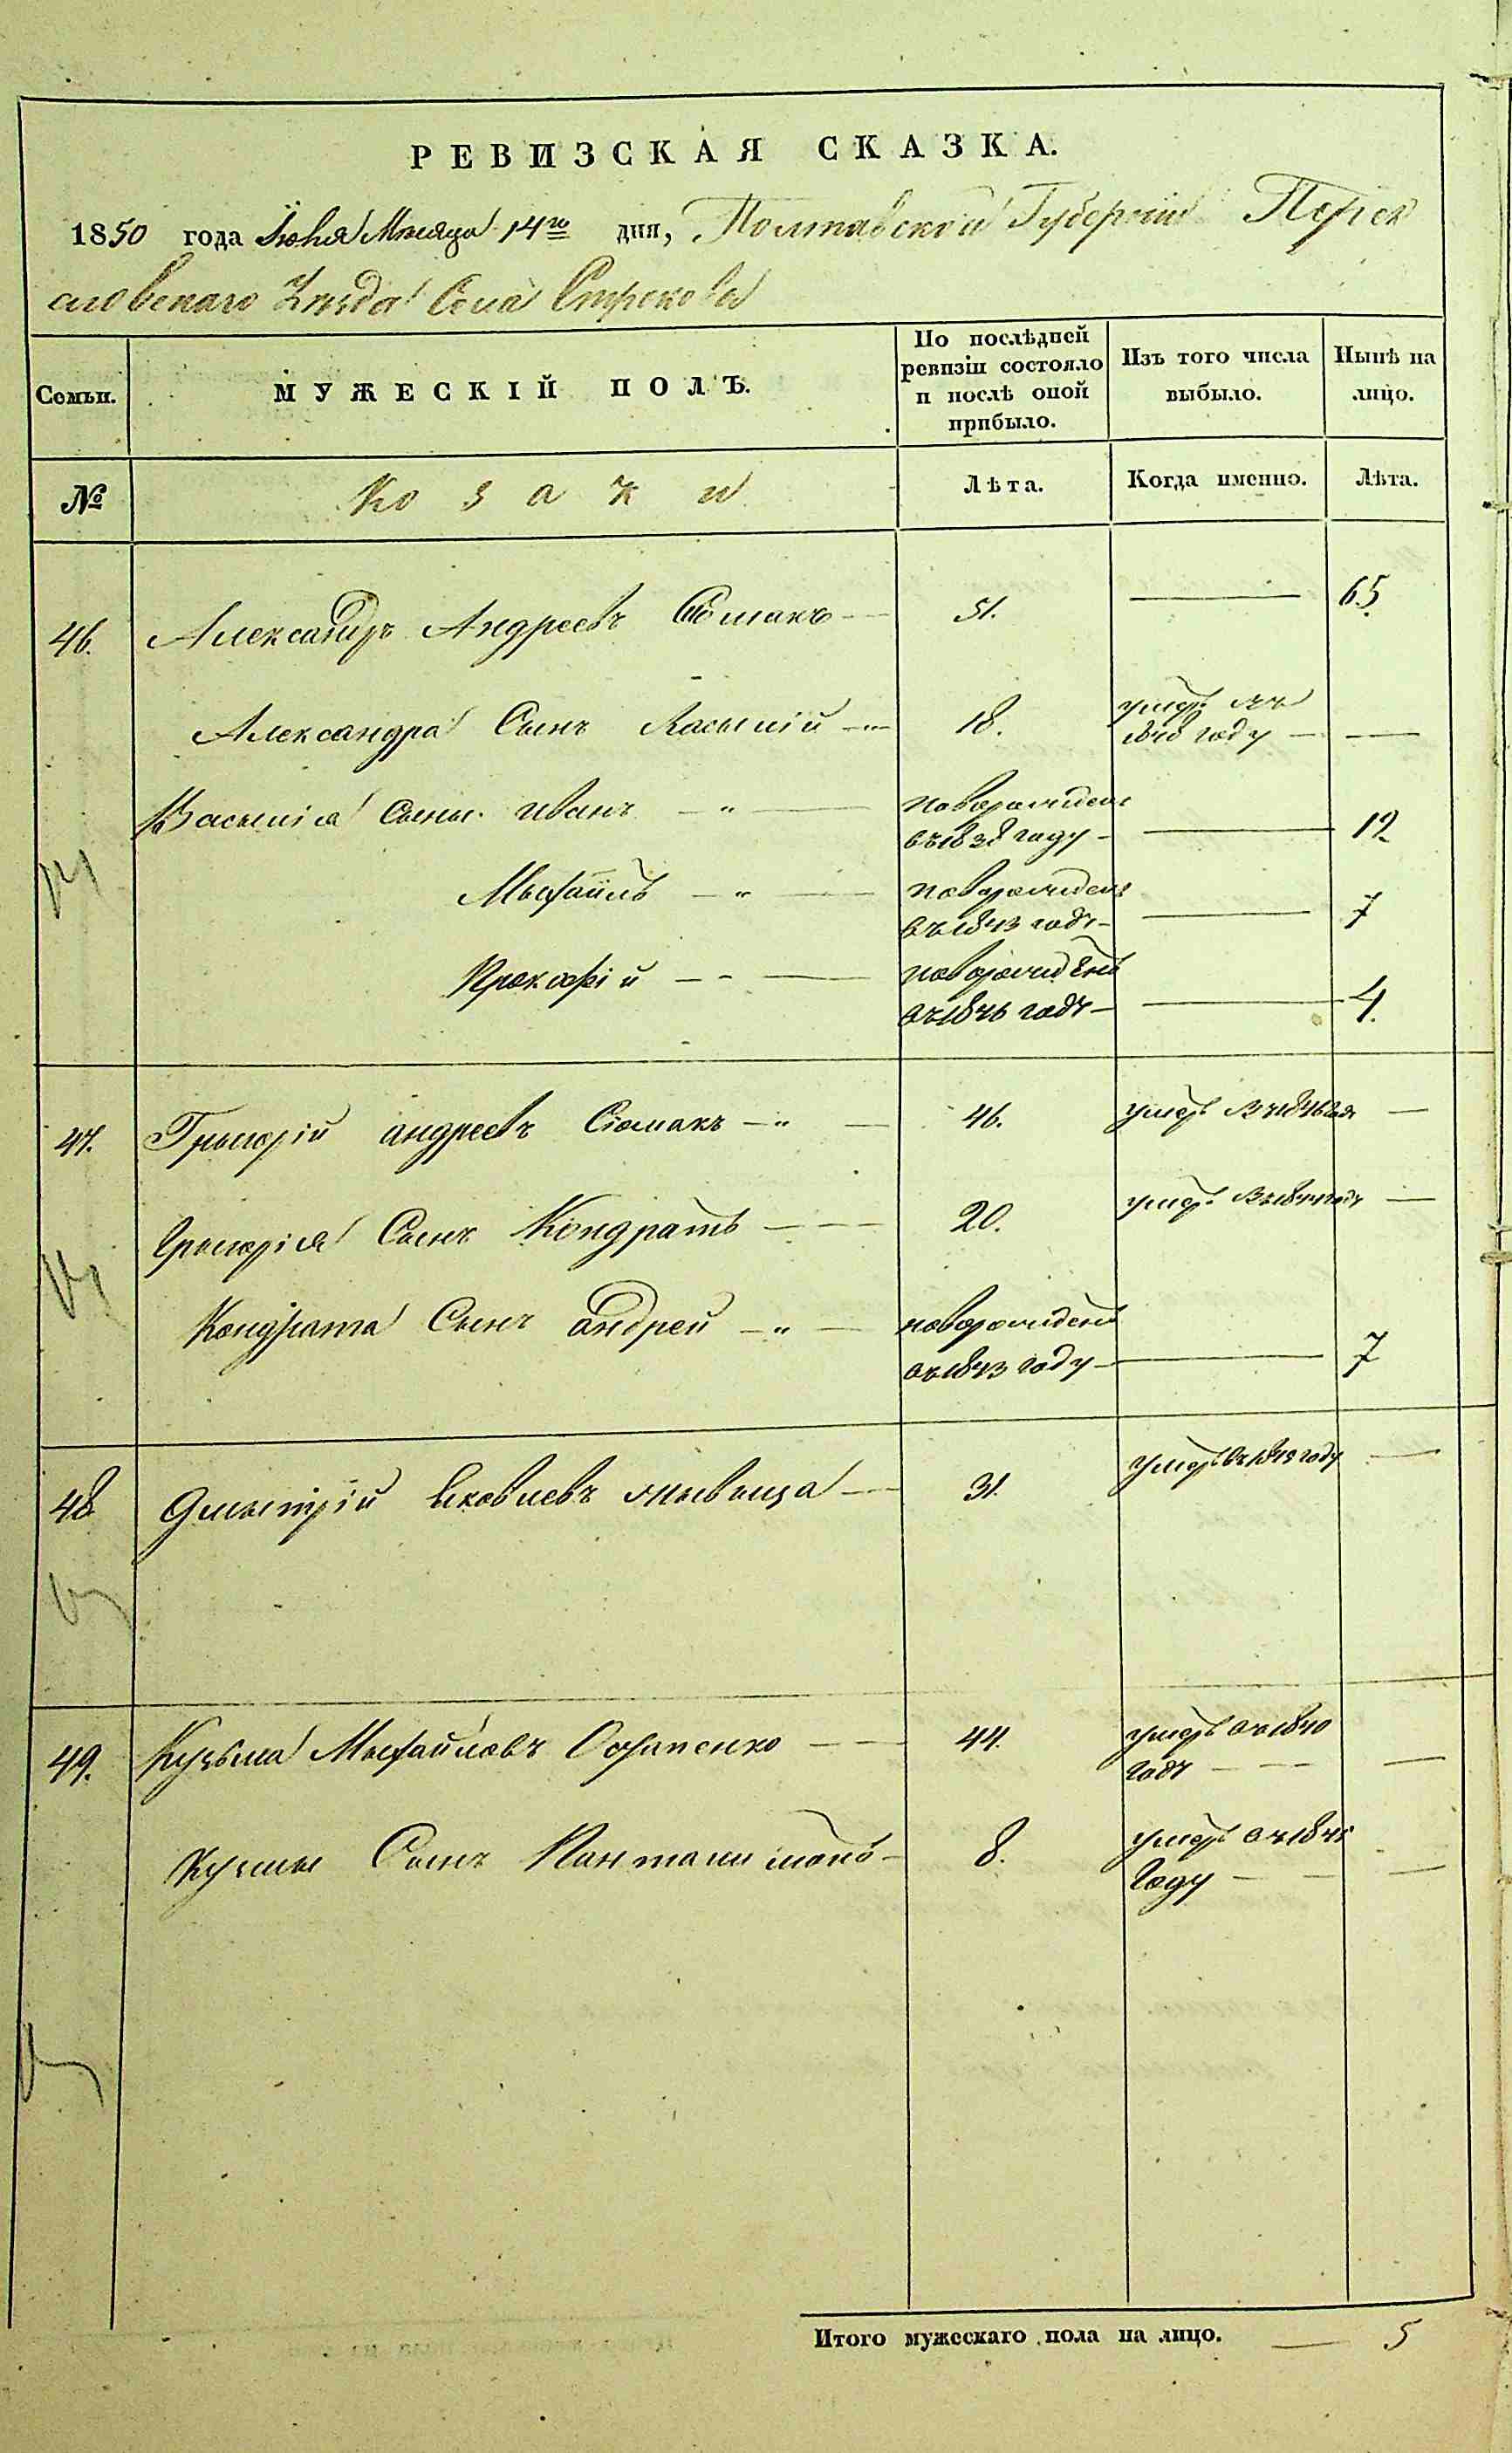 РЕВИЗСКАЯ СКАЗКА.
1850 года Іюня Месяца 14го дня, Полтавской Губерніи Перея
словскаго Уезда Села Строкова
Семьи.
МУЖЕСКІЙ ПОЛЪ.
По послѣдней ревизіи состояло и послѣ оной прибыло.
Изъ того числа выбыло.
Нынѣ на лицо.
№
Козаки
Лѣта.
Когда именно.
Лѣта.
46. Александръ Андреевъ Сіомакъ 51. 65
Александра Сынъ Василій 18. умеръ въ 1840 году
Василія Сыны. иванъ новорожденъ въ 1838 году 12
Михаилъ новорожденъ въ 1843 годе 7
Прокофій новорожденъ въ 1846 годе 4.
47. Григорій андреевъ Сіомакъ 46. умеръ въ 1846 годе
Григорія Сынъ Кондратъ 20. умеръ въ
Кондрата Сынъ андрей новорожденъ въ 1843 году 7
48 Дмитрій Яковлевъ 31. умеръ въ году
49. Кузьма Михайловъ Остапенко 44. умеръ въ 1840 годе
Кузмы Сынъ Пантелимонъ 8. умеръ въ году
Итого мужескаго пола на лицо. 5